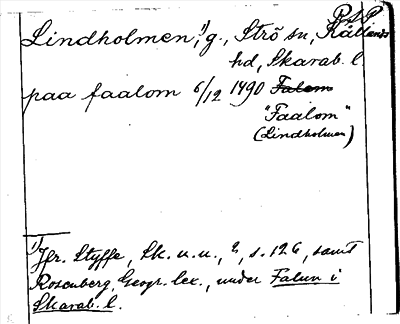 P.S.P.
Lindholmen,¹⁾ g., Strö sn, Kållands
hd, Skarab. l
paa faalom 6/12 1490 Falem
"Faalom"
(Lindholmen)
¹⁾ Jfr. Styffe, Sk. u. u., 3, s. 126, samt
Rosenberg, Geogr. lex., under Falun i
Skarab. l.